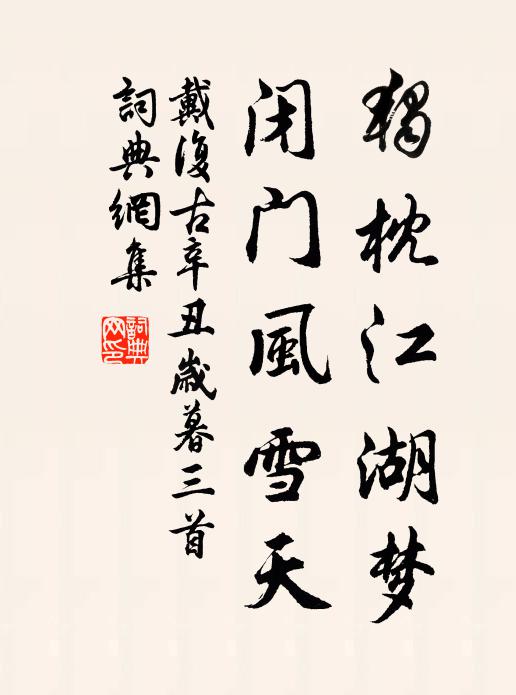 独枕江湖梦
闭门風雪天
戴復古辛丑歲暮三首
詞典網集
詞典网印